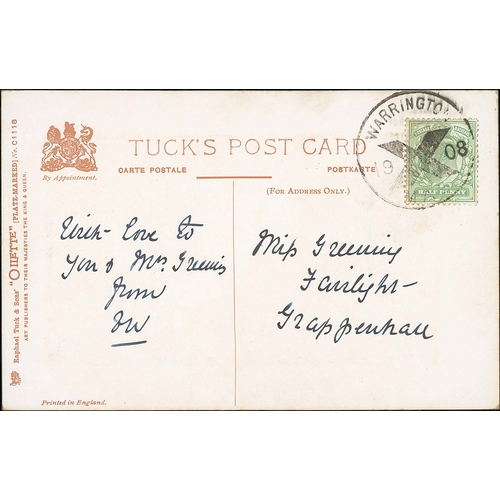 TUCK'S POST CARD
CARTE POSTALE
POSTKARTE
(FOR ADDRESS ONLY.)
By Appointment.
Raphael Tuck & Sons' "OILETTE" [PLATE-MARKED] No. C1118
ART PUBLISHERS TO THEIR MAJESTIES THE KING & QUEEN.
WARRINGTON
19 08
HALFPENNY
With love to
You & Mrs. Greening
from
Miss Greening
Fairlight
Grappenhall
Printed in England.